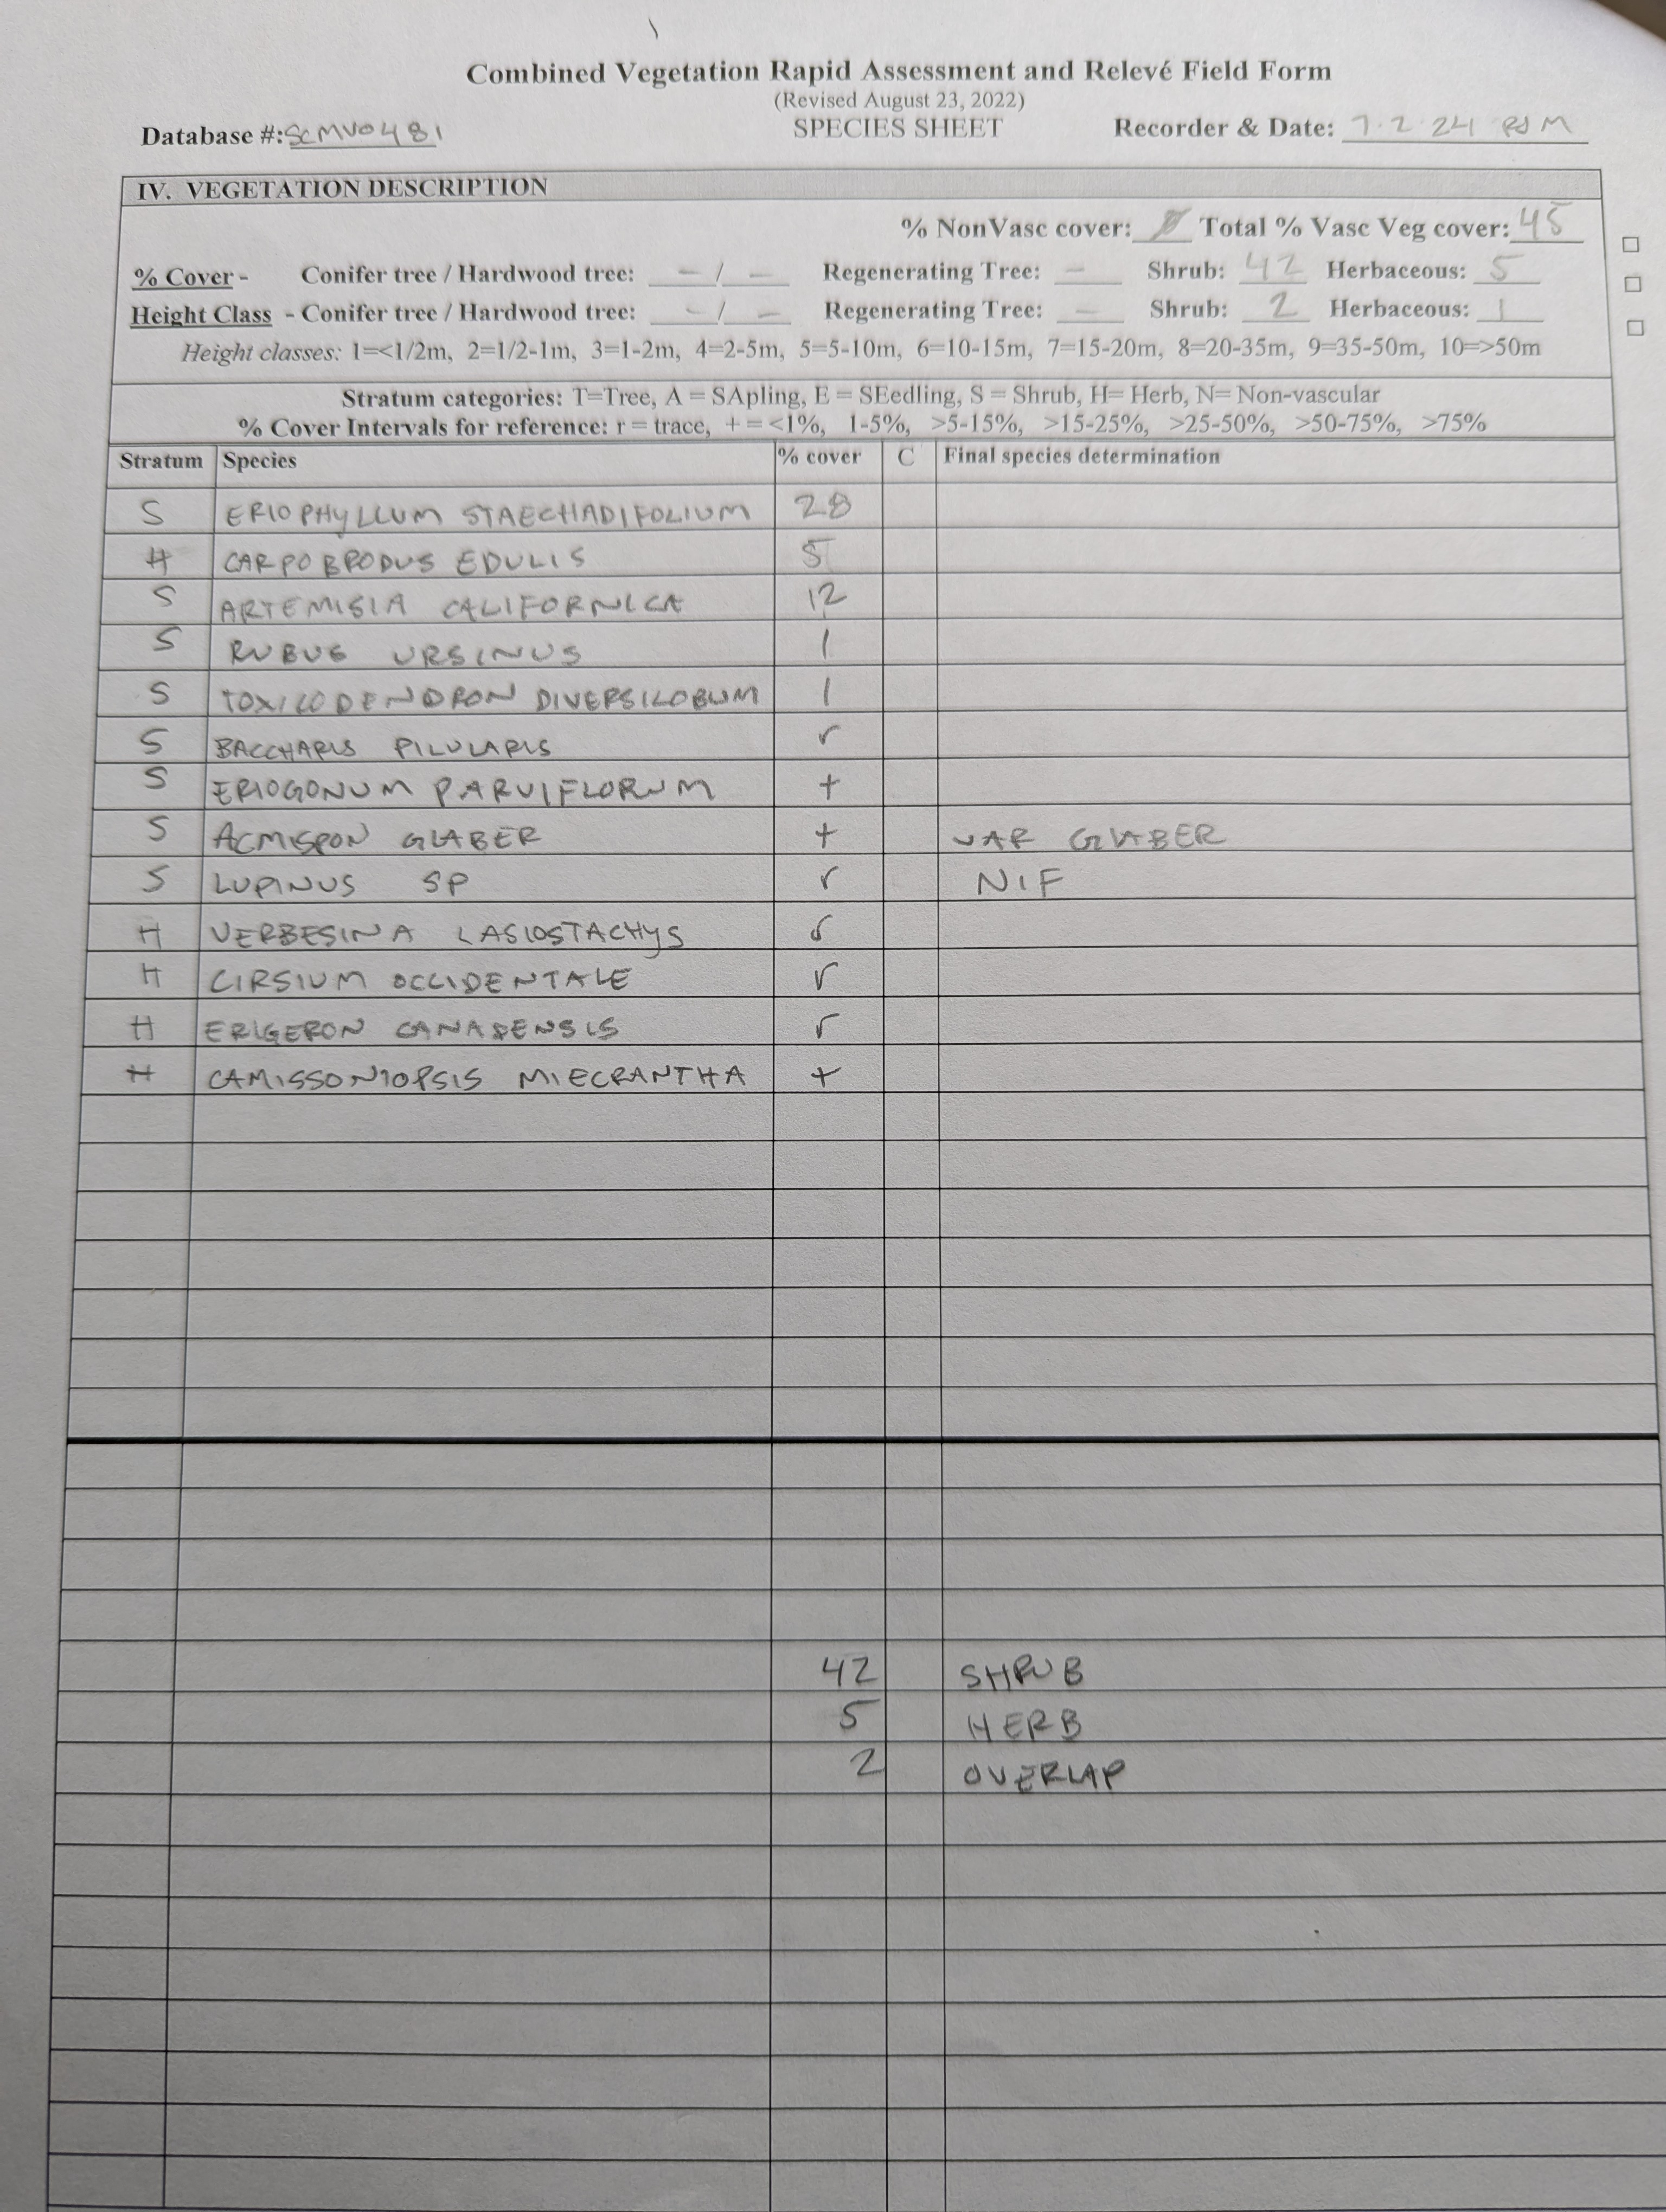 Combined Vegetation Rapid Assessment and Relevé Field Form
(Revised August 23, 2022)
Database #: SCMV0481 SPECIES SHEET Recorder & Date: 7.2.24 RJM
IV. VEGETATION DESCRIPTION
% NonVasc cover: Ø Total % Vasc Veg cover: 45
% Cover - Conifer tree / Hardwood tree: - / - Regenerating Tree: - Shrub: 42 Herbaceous: 5
Height Class - Conifer tree / Hardwood tree: - / - Regenerating Tree: - Shrub: 2 Herbaceous: 1
Height classes: 1=<1/2m, 2=1/2-1m, 3=1-2m, 4=2-5m, 5=5-10m, 6=10-15m, 7=15-20m, 8=20-35m, 9=35-50m, 10=>50m
Stratum categories: T=Tree, A = SApling, E = SEedling, S = Shrub, H= Herb, N= Non-vascular
% Cover Intervals for reference: r = trace, + = <1%, 1-5%, >5-15%, >15-25%, >25-50%, >50-75%, >75%
Stratum Species % cover C Final species determination
S ERIOPHYLLUM STAECHADIFOLIUM 28
H CARPOBRODUS EDULIS 5
S ARTEMISIA CALIFORNICA 12
S RUBUS URSINUS 1
S TOXICODENDRON DIVERSILOBUM 1
S BACCHARIS PILULARIS r
S ERIOGONUM PARVIFLORUM +
S ACMISPON GLABER + VAR GLABER
S LUPINUS SP r NIF
H VERBESINA LASIOSTACHYS r
H CIRSIUM OCCIDENTALE r
H ERIGERON CANADENSIS r
H CAMISSONIOPSIS MIECRANTHA +
42 SHRUB
5 HERB
2 OVERLAP